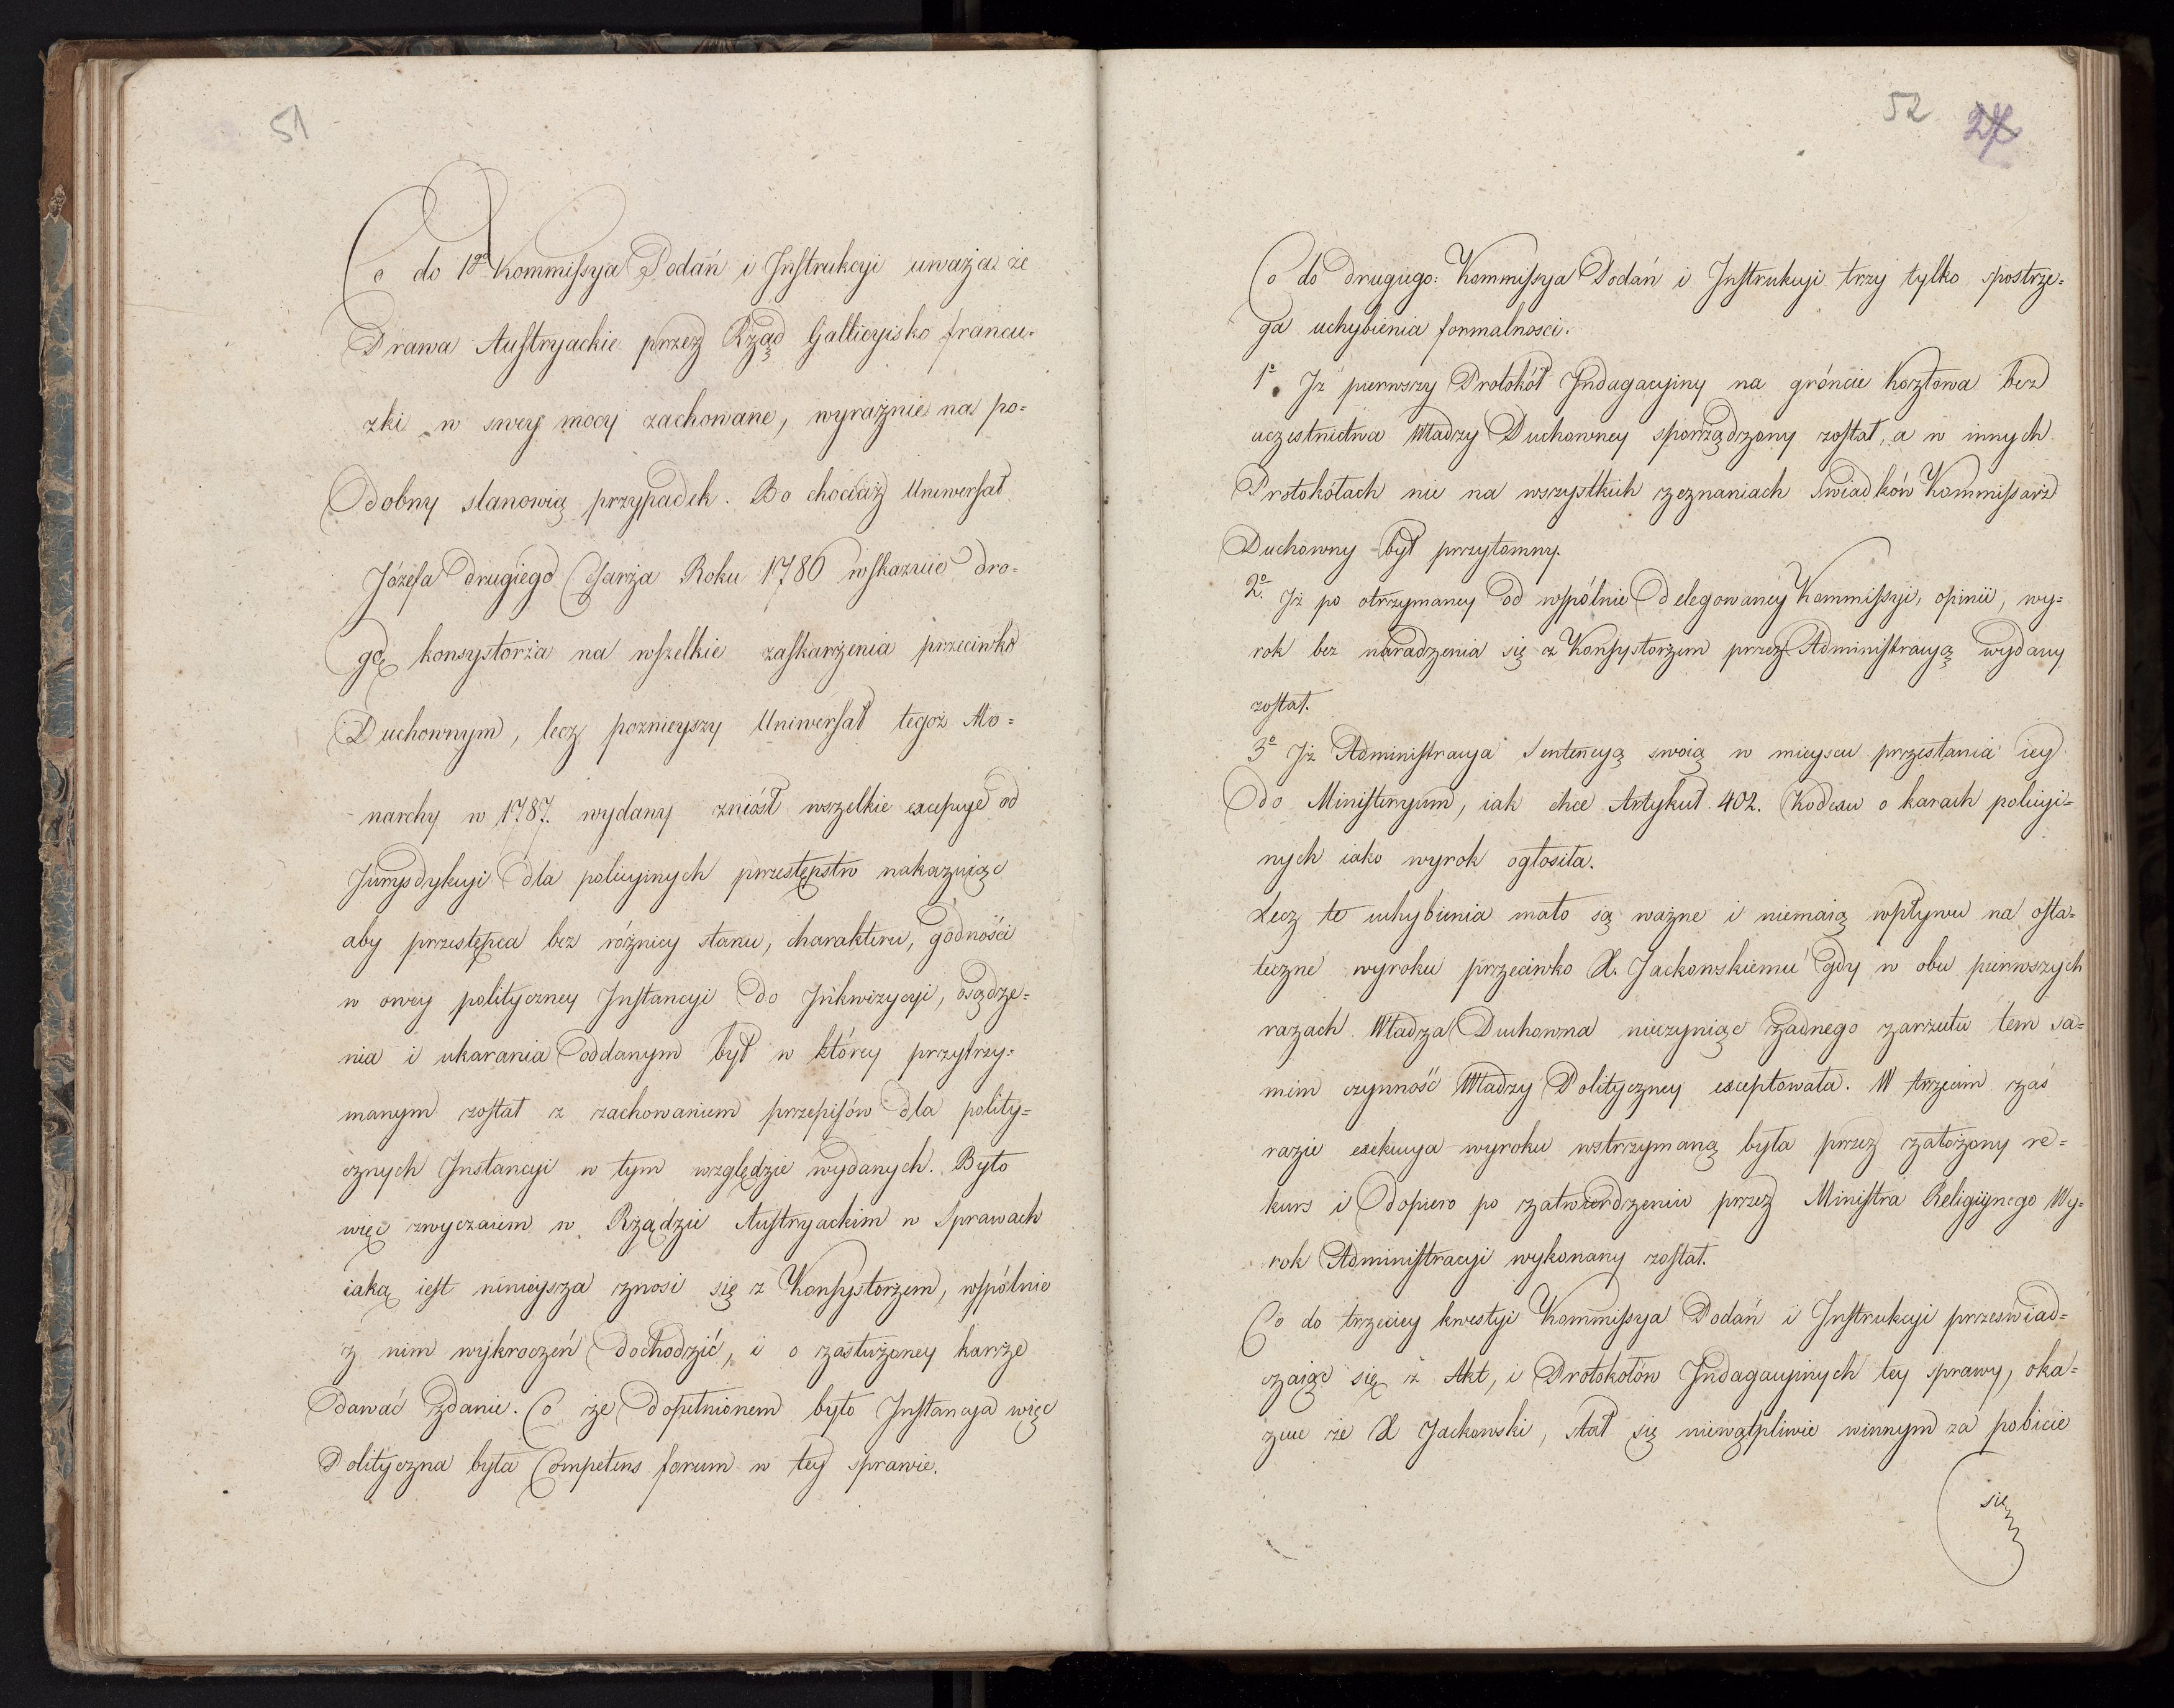 51
Co do 1go Kommissya Podań i Instrukcyi uważa że
Prawa Austryackie przez Rząd Gallicyisko francu=
zki w swey mocy zachowane, wyraźnie na po=
dobny stanowią przypadek. Bo chociaż Uniwersał
Józefa drugiego Cesarza Roku 1786 wskazuie dro=
gę konsystorza na wszelkie zaskarżenia przeciwko
Duchownym, lecz poznieyszy Uniwersał tegoż Mo=
narchy w 1787. wydany zniósł wszelkie excepcye od
Jurysdykcyi dla policyinych przestępstw nakazuiąc
aby przestępca bez różnicy stanu, charakteru, godności
w owey polityczney Instancyi do Inkwizycyi, osądze=
nia i ukarania oddanym był w którey przytrzy=
manym został z zachowaniem przepisów dla polity=
cznych Instancyi w tym względzie wydanych. Było
więc zwyczaiem w Rządzie Austryackim w Sprawach
iaką iest ninieysza znosi się z Konsystorzem, wspólnie
z nim wykroczeń dochodzić, i o zasłużoney karze
dawać zdanie. Co że dopełnionem było Instancya więc
Polityczna była Competens forum w tey sprawie.
52 27
Co do drugiego: Kommissya Podań i Instrukcyi trzy tylko spostrze=
ga uchybienia formalnosci.
1o. Iż pierwszy Protokół Indagacyiny na gróncie Kozłowa bez
uczestnictwa Władzy Duchowney sporządzony został, a w innych
Protokółach nie na wszystkich zeznaniach Swiadków Kommissarz
Duchowny był przytomny.
2o. Iż po otrzymaney od wspólnie delegowaney Kommissyi, opinii, wy=
rok bez naradzenia się z Konsystorzem przez Administracyą wydany
został.
3o Iż Administracya Sentencyą swoią w mieyscu przesłania iey
do Ministeryum, iak chce Artykuł 402. Kodexu o karach policyi=
nych iako wyrok ogłosiła.
Lecz te uchybienia mało są ważne i niemaią wpływu na osta=
teczne wyroku przeciwko X. Jackowskiemu gdy w obu peirwszych
razach Władza Duchowna nieczyniąc żadnego zarzutu tem sa=
mem czynność Władzy Polityczney exceptowała. W trzecim zaś
razie exekucya wyroku wstrzymaną była przez założony re=
kurs i dopiero po zatwierdzeniu przez Ministra Religiynego Wy=
rok Administracyi wykonany został.
Co do trzeciey kwestyi Kommissya Podań i Instrukcyi przeswiad=
czaiąc się z Akt, i Protokołów Indagacyinych tey sprawy, oka=
zuie że X Jackowski, stał się niewątpliwie winnym za pobicie
się